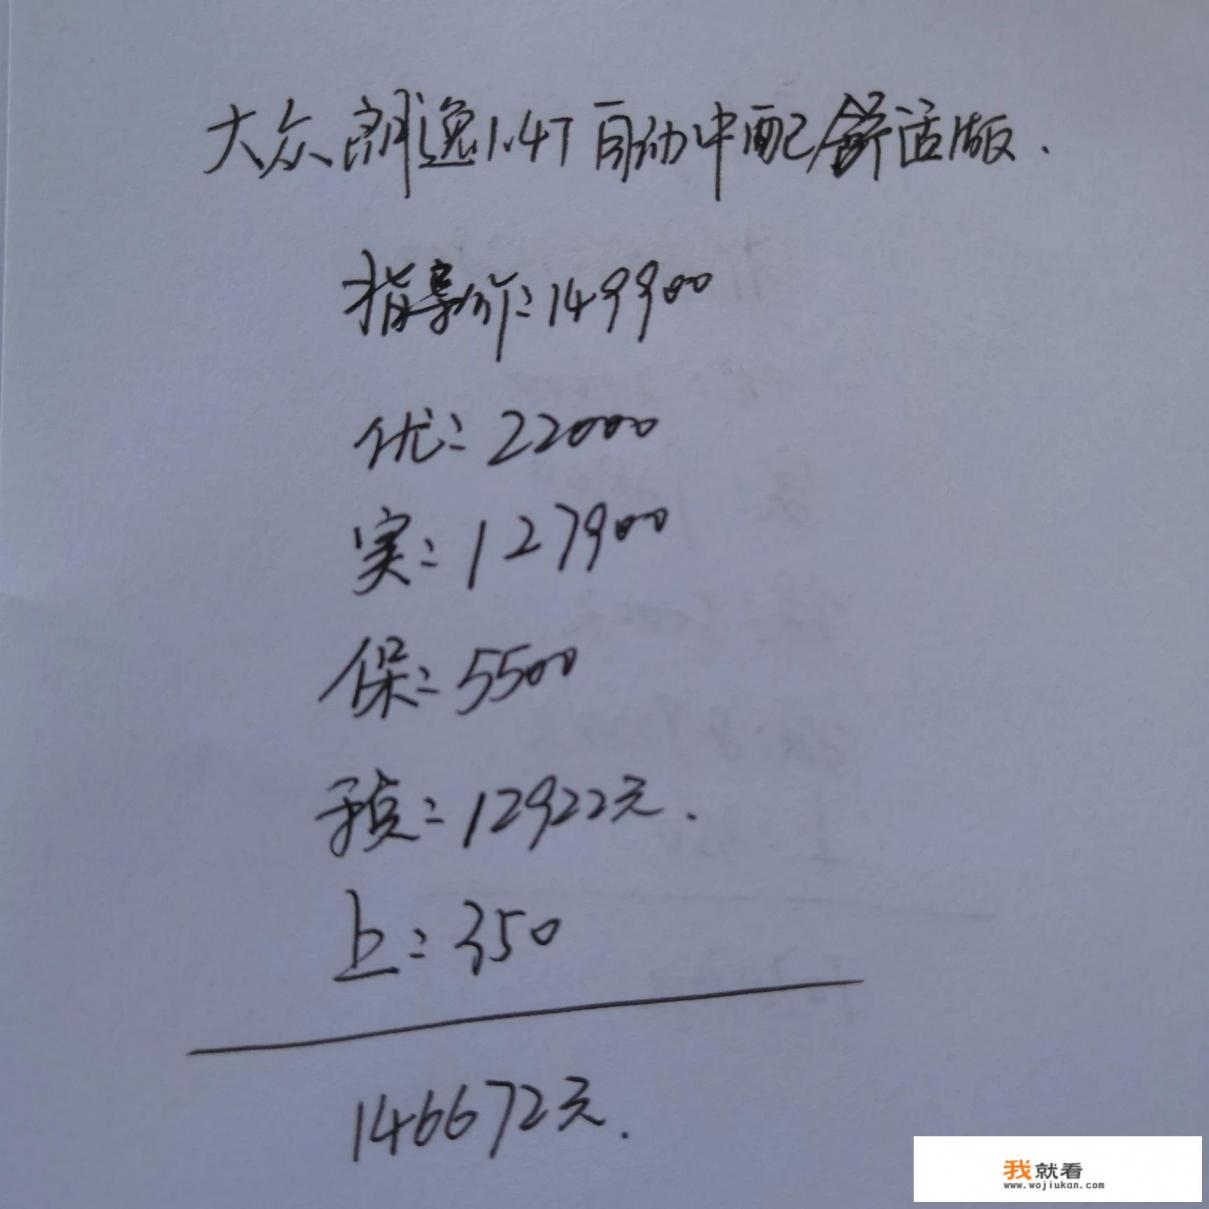 大众朗逸1.4T自动中配舒适版.
指导价:149900
优:22000
实:127900
保:5500
预:12922元.
上:350
146672元.
我就看
www.wojiukan.com